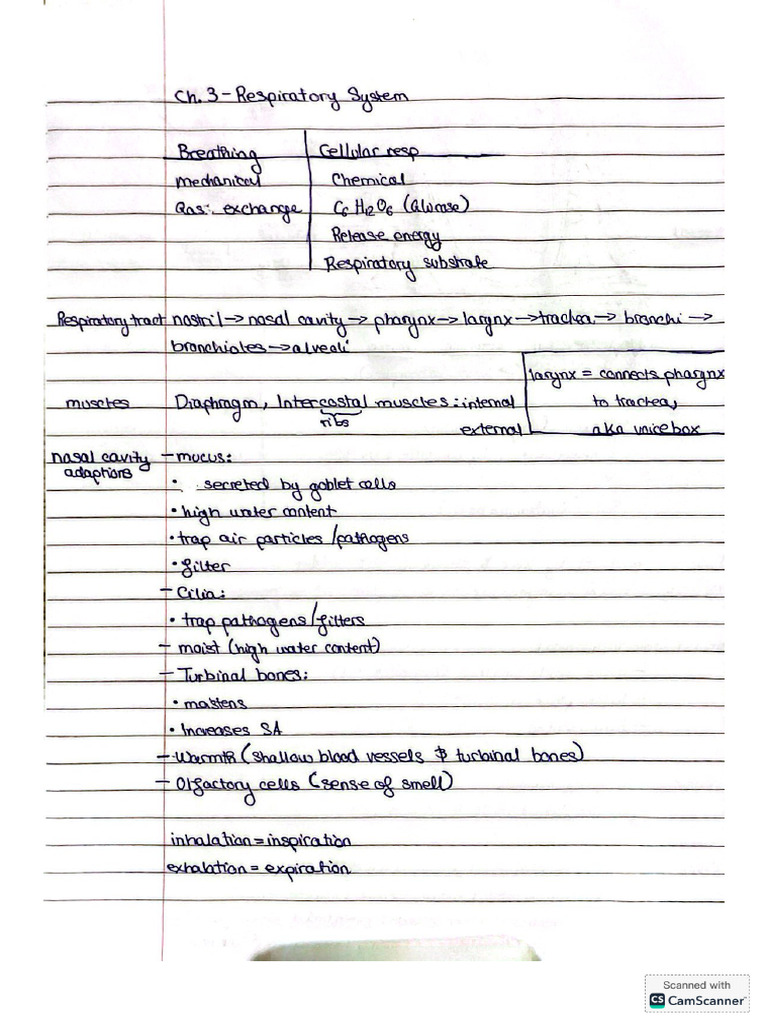 Ch. 3 - Respiratory System
Breathing Cellular resp
mechanical Chemical
Gas: exchange C6 H12O6 (Glucose)
Release energy
Respiratory substrate
Respiratory tract nostril → nasal cavity → pharynx → larynx → trachea → bronchi →
bronchioles → alveoli
larynx = connects pharynx
to trachea,
aka voicebox
muscles Diaphragm, Intercostal muscles: internal
ribs external
nasal cavity adaptions - mucus:
• secreted by goblet cells
• high water content
• trap air particles / pathogens
• filter
- Cilia:
• trap pathogens / filters
- moist (high water content)
- Turbinal bones:
• moistens
• Increases SA
- Warmth (shallow blood vessels & turbinal bones)
- Olfactory cells (sense of smell)
inhalation = inspiration
exhalation = expiration
Scanned with
CS CamScanner